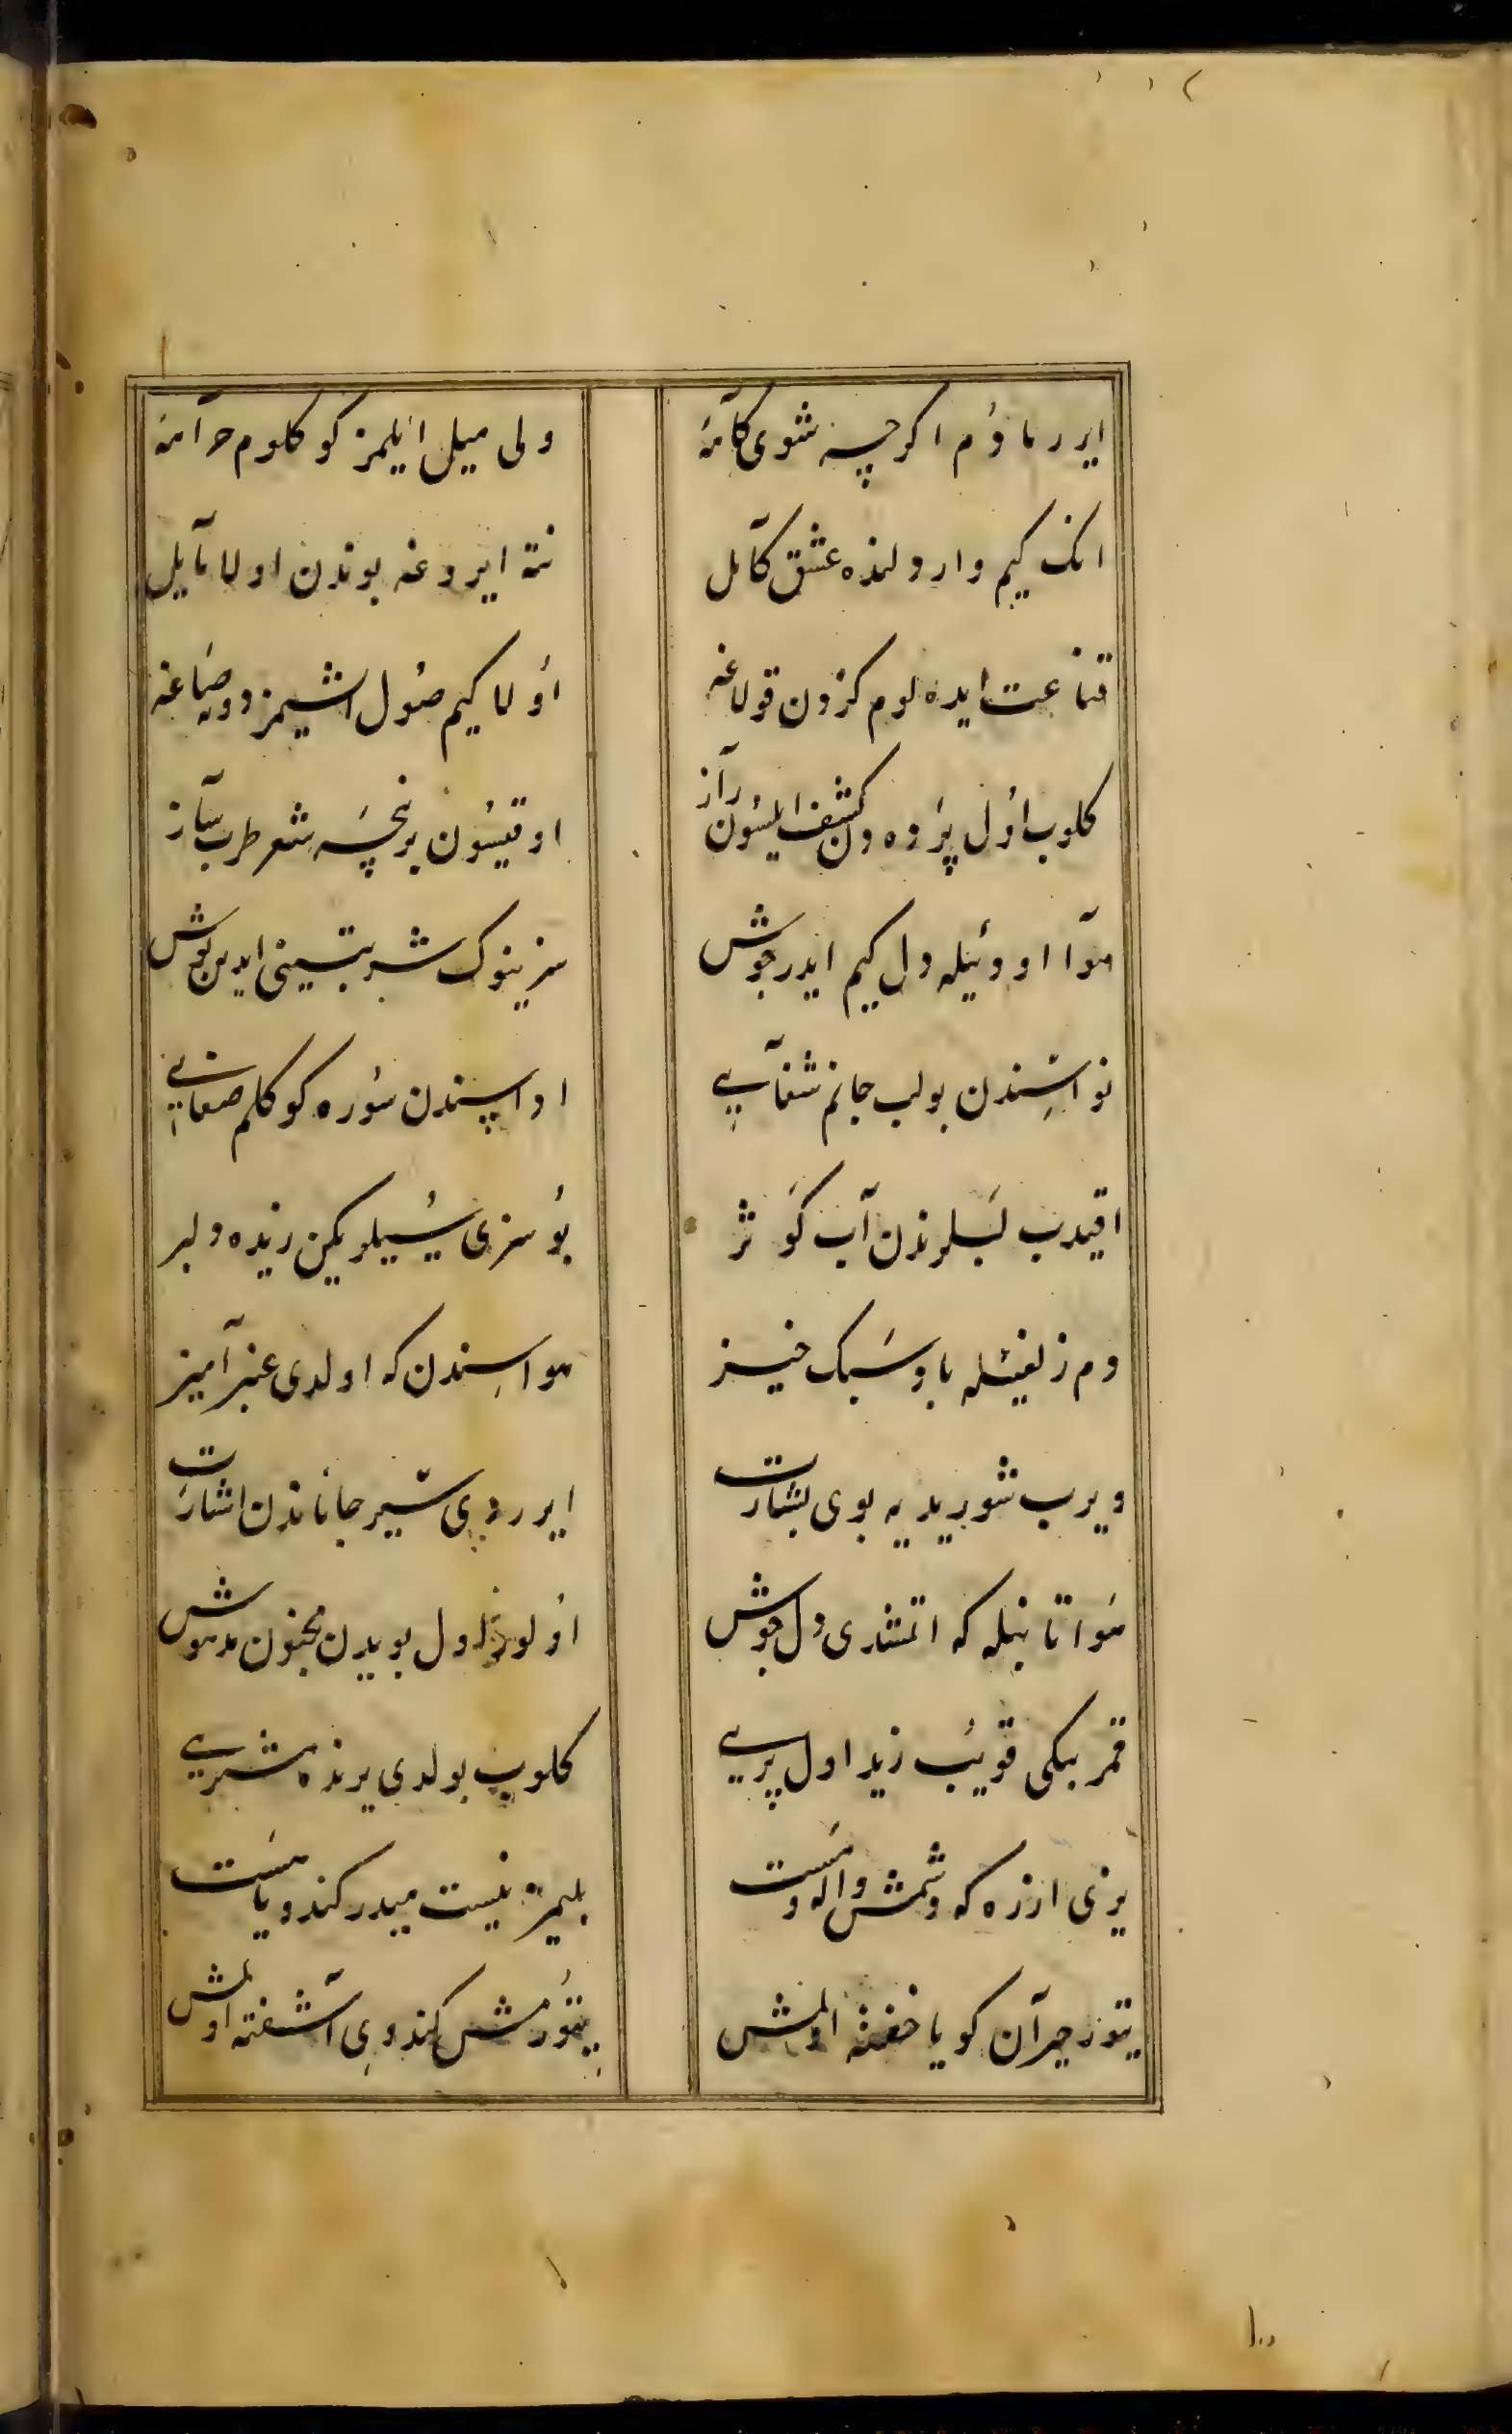 ایر رماوُم اکرچه شوی کامَه ولی میل ایلمز کوکلوم حرامَه
انک کیم وار دلنده عشق کامل نته ایروغه بوندن اولا مایل
قناعت ایده لوم کزدن قولاغه اُولا کیم صُول اشیمز دونه صاغه
کلوب اُول پرده دن کشف ایلسُون راز اوقیسُون برنچه شعر طرب ساز
هوا اودیله دل کیم ایدر جوش سزینوک شربتینی ایدین نوش
نواسِندن بولب جانم شفایی اداسندن سُوره کوکلم صفایی
اقیدب لبلرندن آب کوثر بُو سزی سُیلر یکن زنده دلبر
دم زلفیله باد سَبک خیز هواسِندن که اولدی عنبر آمیز
ویرب شوریدیه بوی بشارت ایرردی سّیر جاناندن اشارت
هوا تابیله که اتمشدی دل جوش اُولور اول بویدن مجنون مدهوش
قمر بیکی قویُب زید اول پریی کلوب بولدی یرنده مشتریی
یزی ارزه که دشمش واله و مست بلیمز نیست میدر کندو یا هست
یتور حیران کویا خفته اولمش یتُورمش کندوی آشفته اولمش